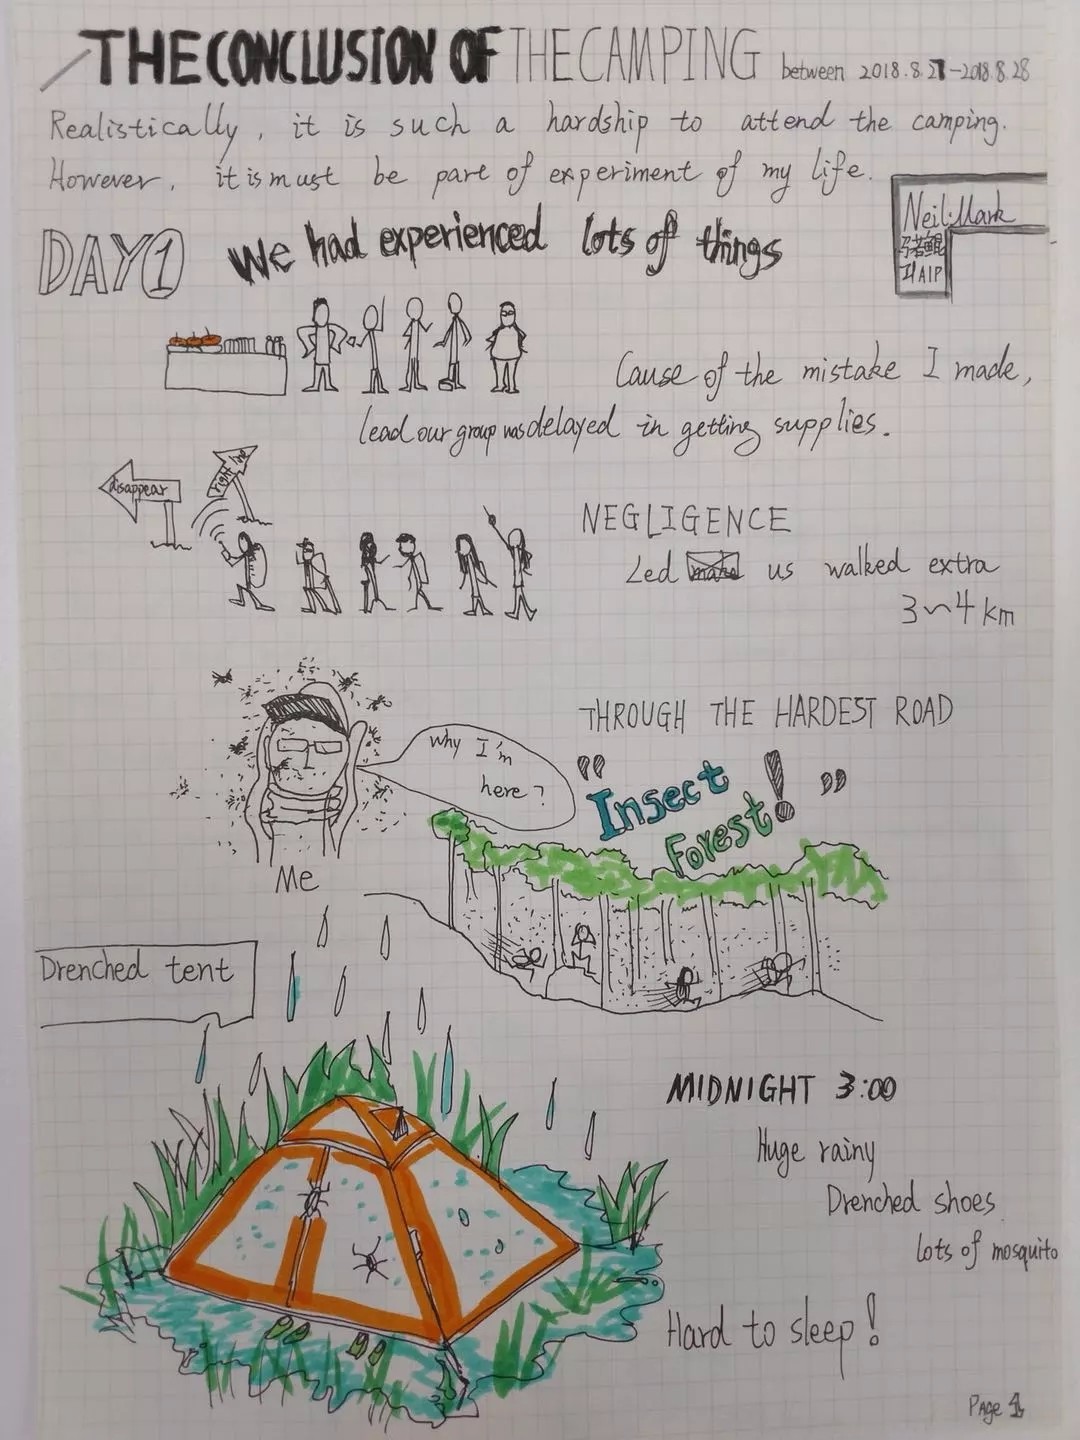 THE CONCLUSION OF THE CAMPING between 2018.8.27-2018.8.28
Realistically, it is such a hardship to attend the camping.
However, it is must be part of experiment of my life.
Neil.Mark
马若鲲
11AIP
DAY1 We had experienced lots of things
Cause of the mistake I made,
lead our group was delayed in getting supplies.
disappear
right
NEGLIGENCE
Led make us walked extra
3~4 km
THROUGH THE HARDEST ROAD
why I'm
here?
"Insect
Forest!"
Me
Drenched tent
MIDNIGHT 3:00
Huge rainy
Drenched shoes
lots of mosquito
Hard to sleep!
Page 1